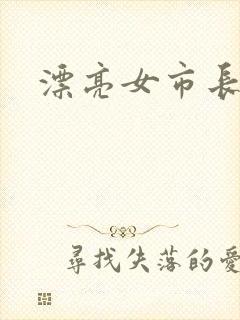 漂亮女市長
尋找失落的愛